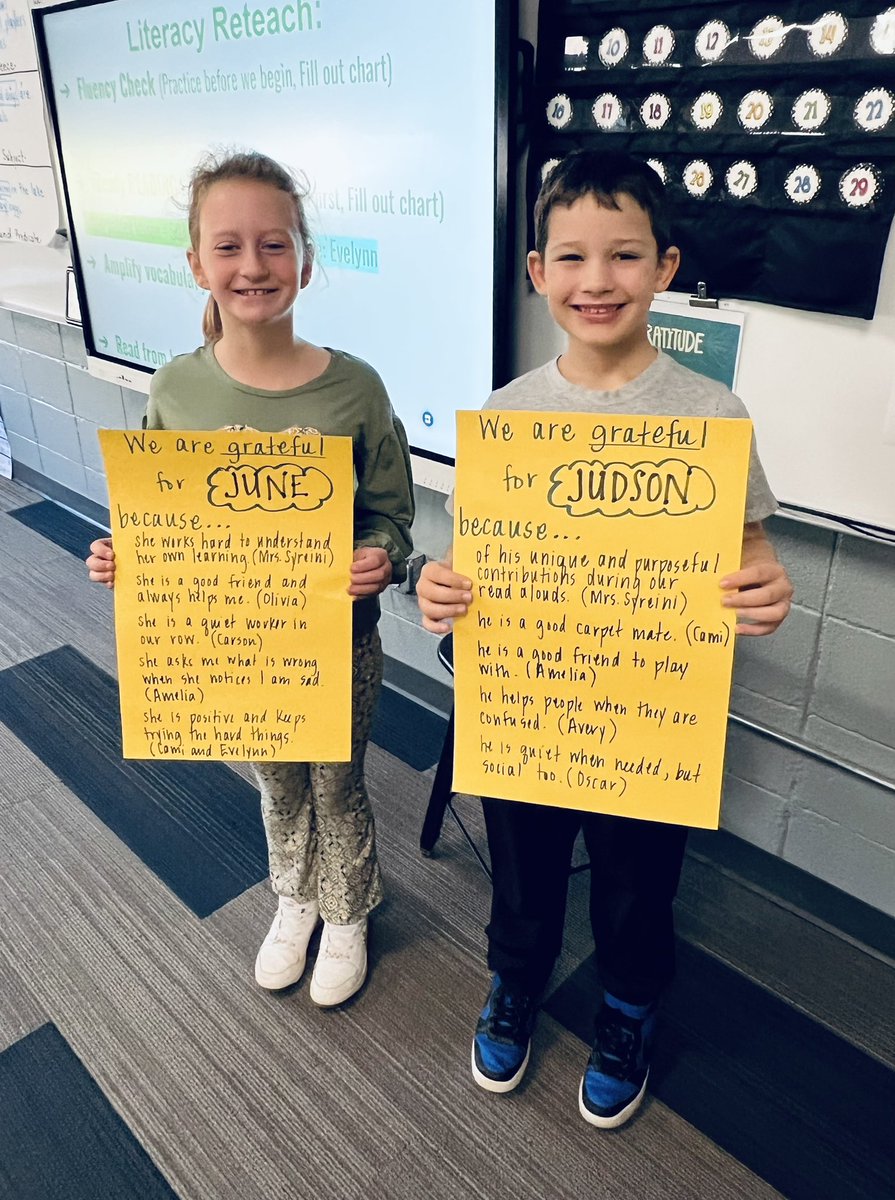 Literacy Reteach:
→ Fluency Check (Practice before we begin, Fill out chart)
First, Fill out chart)
: Evelynn
→ Amplify vocabulary
→ Read from
10 11 12 13 14
16 17 18 19 20 21 22
26 27 28 29
GRATITUDE
We are grateful
for JUNE
because...
she works hard to understand
her own learning. (Mrs. Syreini)
She is a good friend and
always helps me. (Olivia)
she is a quiet worker in
our row. (Carson)
she asks me what is wrong
when she notices I am sad.
(Amelia)
she is positive and keeps
trying the hard things.
(Cami and Evelynn)
We are grateful
for JUDSON
because...
of his unique and purposeful
contributions during our
read alouds. (Mrs. Syreini)
he is a good carpet mate. (Cami)
he is a good friend to play
with. (Amelia)
he helps people when they are
confused. (Avery)
he is quiet when needed, but
social too. (Oscar)